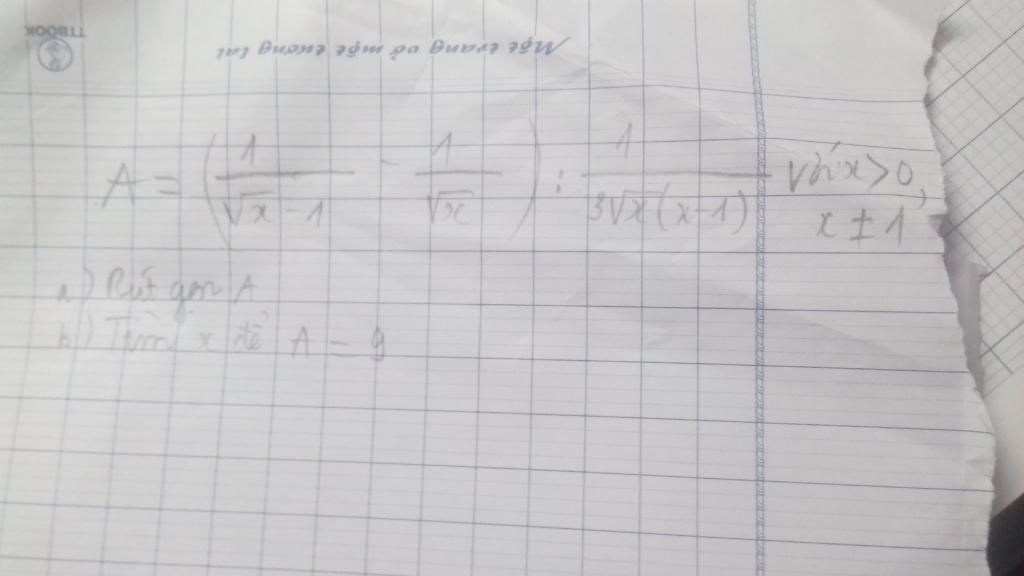 TTBOOK
Một trang vở một tương lai
A = (1/(√x - 1) - 1/√x) : 1/(3√x(x-1)) với x>0,
x ≠ 1
a) Rút gọn A
b) Tìm x để A = 9